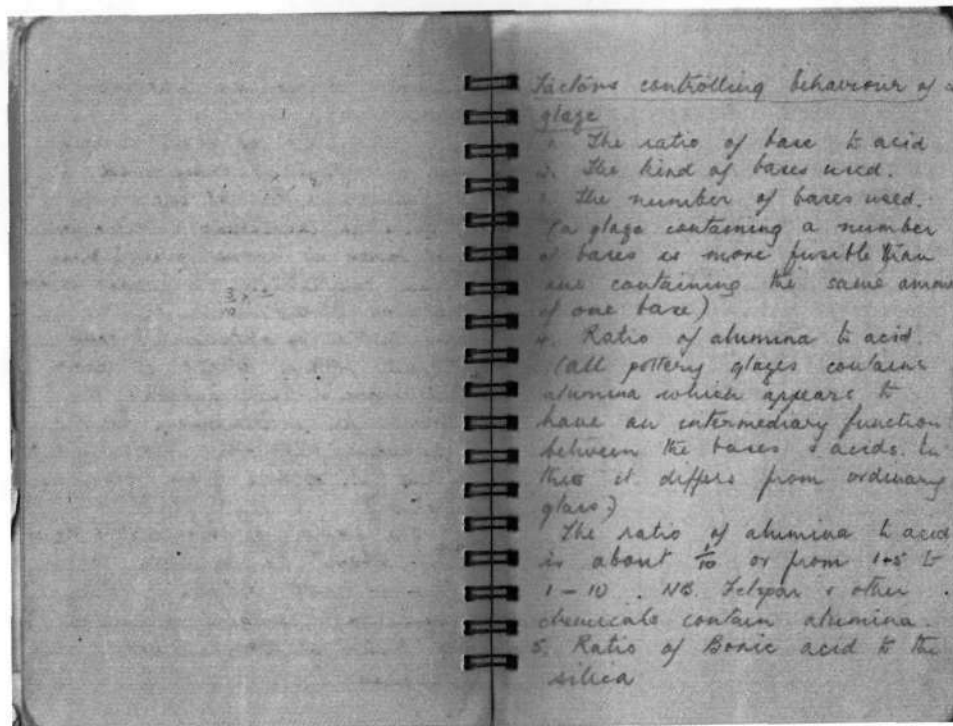 Factors controlling behaviour of a
glaze
1. The ratio of base to acid
2. The kind of bases used.
3. The number of bases used.
(a glaze containing a number
of bases is more fusible than
one containing the same amoun
of one base)
4. Ratio of alumina to acid.
(all pottery glazes contains
alumina which appears to
have an intermediary function
between the bases & acids. In
this it differs from ordinary
glass.)
The ratio of alumina to acid
is about 1/10 or from 1-5 to
1-10. NB. Felspar & other
chemicals contain alumina.
5. Ratio of Boric acid to the
silica